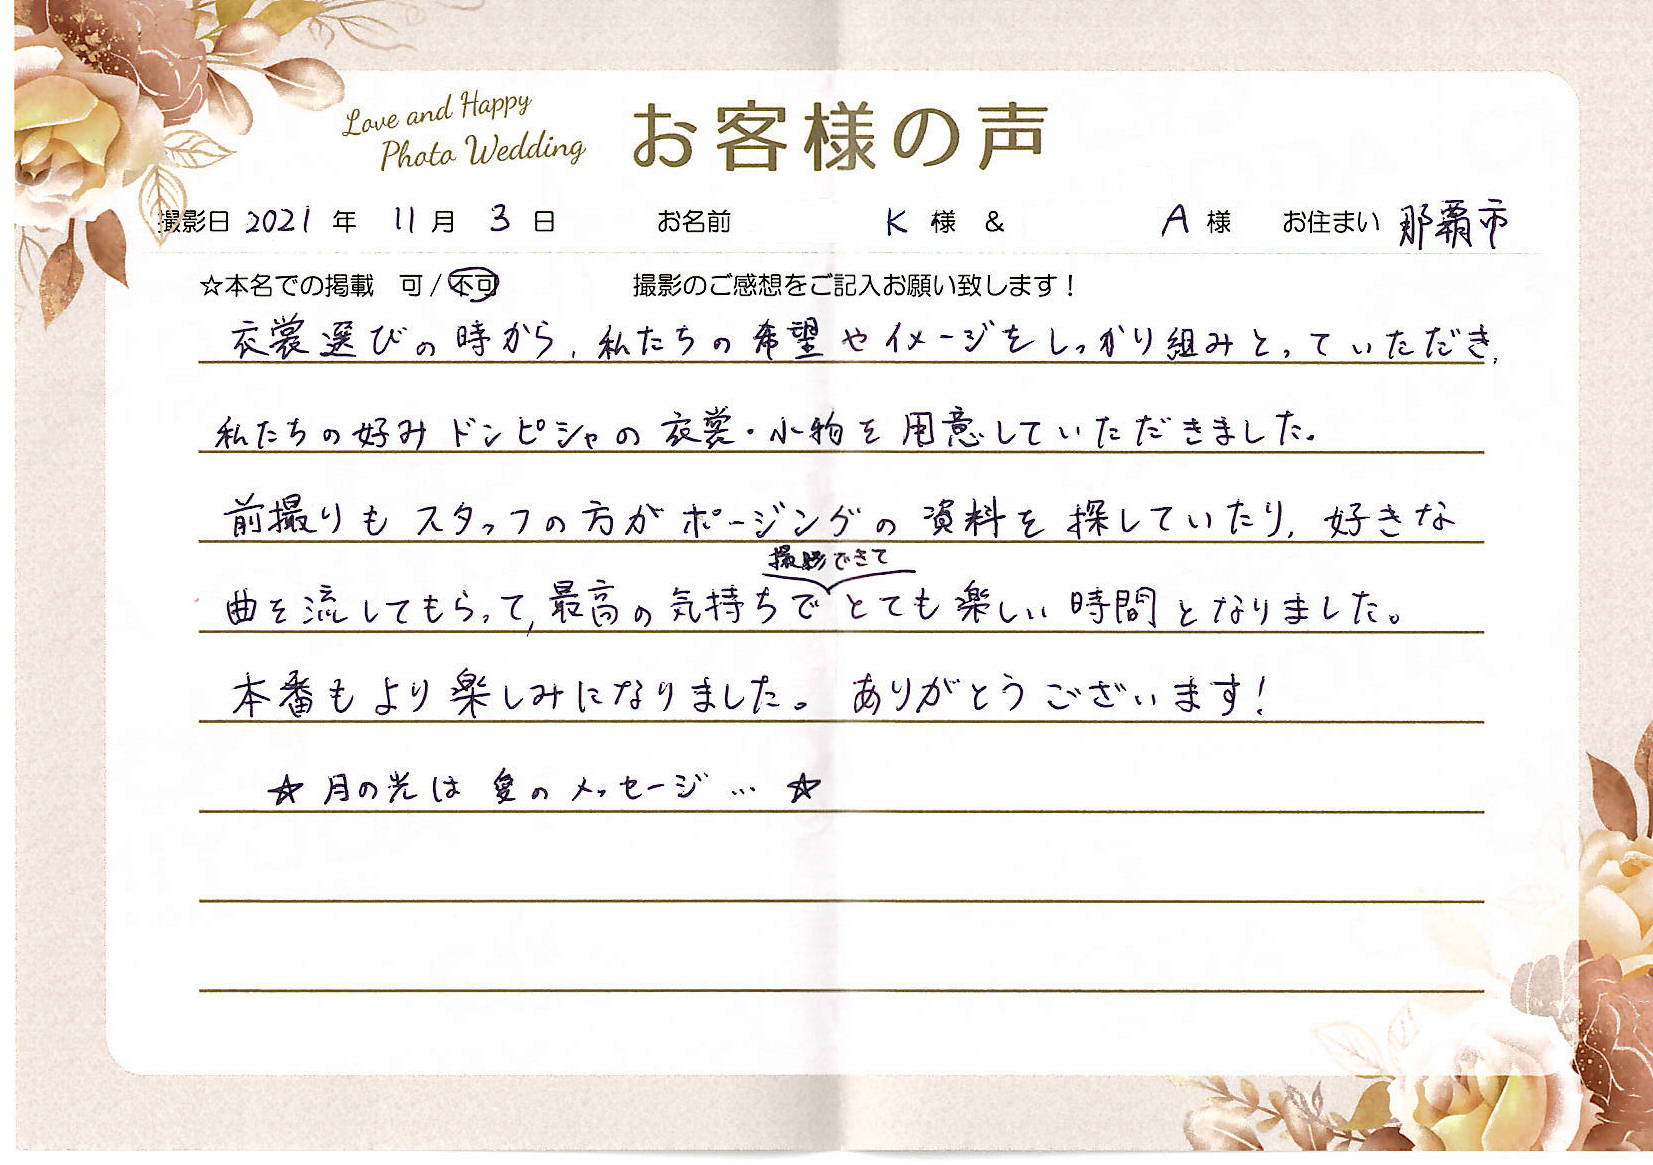 Love and Happy
Photo Wedding
お客様の声
撮影日 2021 年 11 月 3 日 お名前 K 様 & A 様 お住まい 那覇市
☆本名での掲載 可 / 不可 撮影のご感想をご記入お願い致します！
衣裳選びの時から、私たちの希望やイメージをしっかり組みとっていただき、
私たちの好みドンピシャの衣裳・小物を用意していただきました。
前撮りもスタッフの方がポージングの資料を探していたり、好きな
撮影できて
曲を流してもらって、最高の気持ちでとても楽しい時間となりました。
本番もより楽しみになりました。ありがとうございます！
☆ 月の光は 愛のメッセージ… ☆